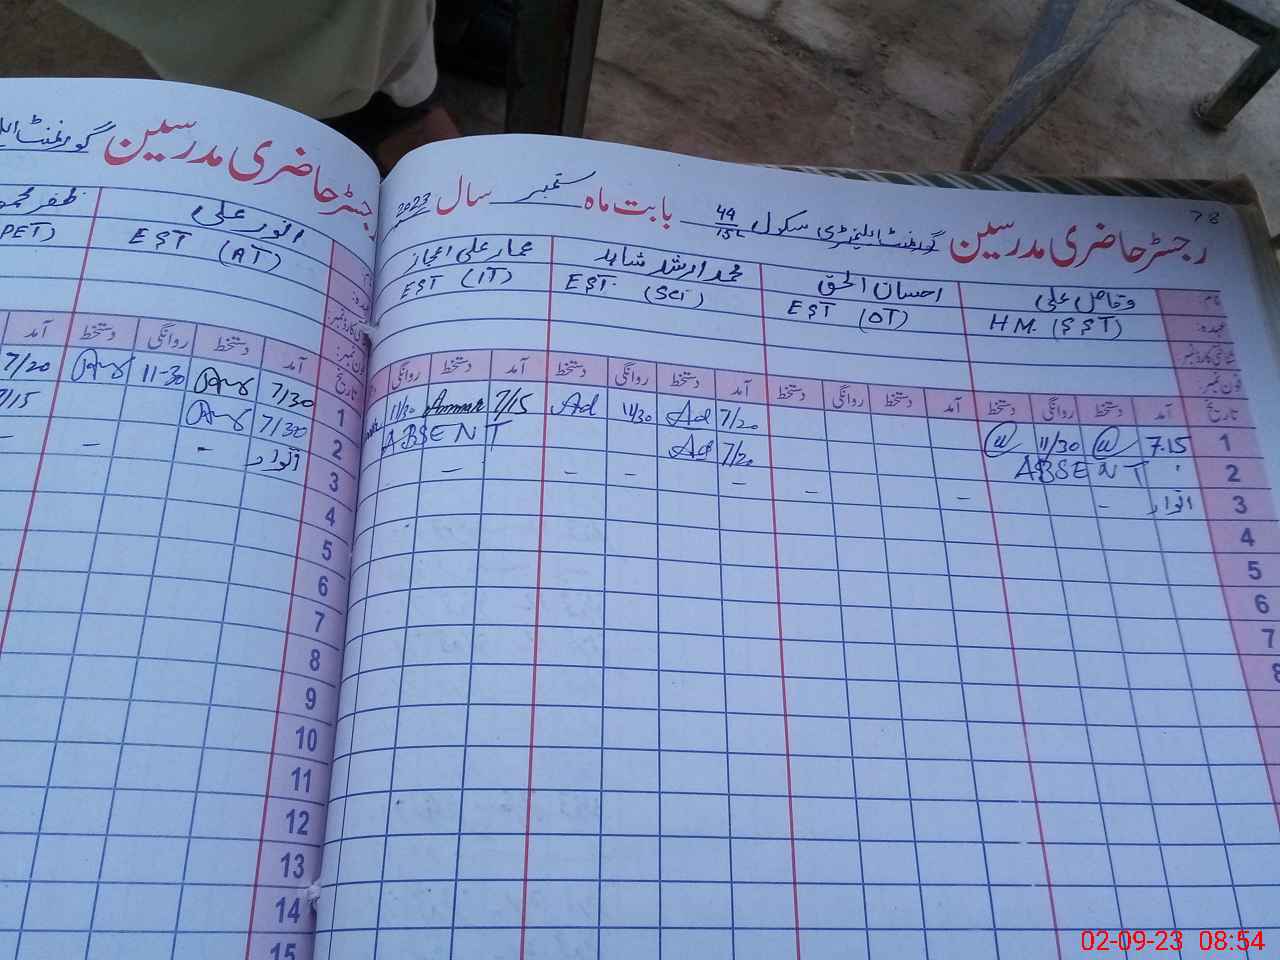 78
رجسٹر حاضری مدرسین گورنمنٹ ایلیمنٹری سکول 49/15L بابت ماہ ستمبر سال 2023
نام: وقاص علی احسان الحق محمد ارشد شاہد عمار علی اعجاز
عہدہ: H.M. (SST) EST (OT) EST (Sci) EST (IT)
شناختی کارڈ نمبر
فون نمبر:
تاریخ آمد دستخط روانگی دستخط آمد دستخط روانگی دستخط آمد دستخط روانگی دستخط آمد دستخط روانگی
1 7.15 11/30 7/20 Ad 11/30 Ad 7/15 Ammar 11/30
2 ABSENT 7/20 Ad ABSENT
3 اتوار - - - - - - -
4
5
6
7
8
رجسٹر حاضری مدرسین گورنمنٹ
انور علی ظفر محمو
EST (AT) PET)
فون نمبر:
تاریخ آمد دستخط روانگی دستخط آمد
1 7/30 11-30 7/20
2 7/30 7/15
3 اتوار - - -
4
5
6
7
8
9
10
11
12
13
14
15
02-09-23 08:54